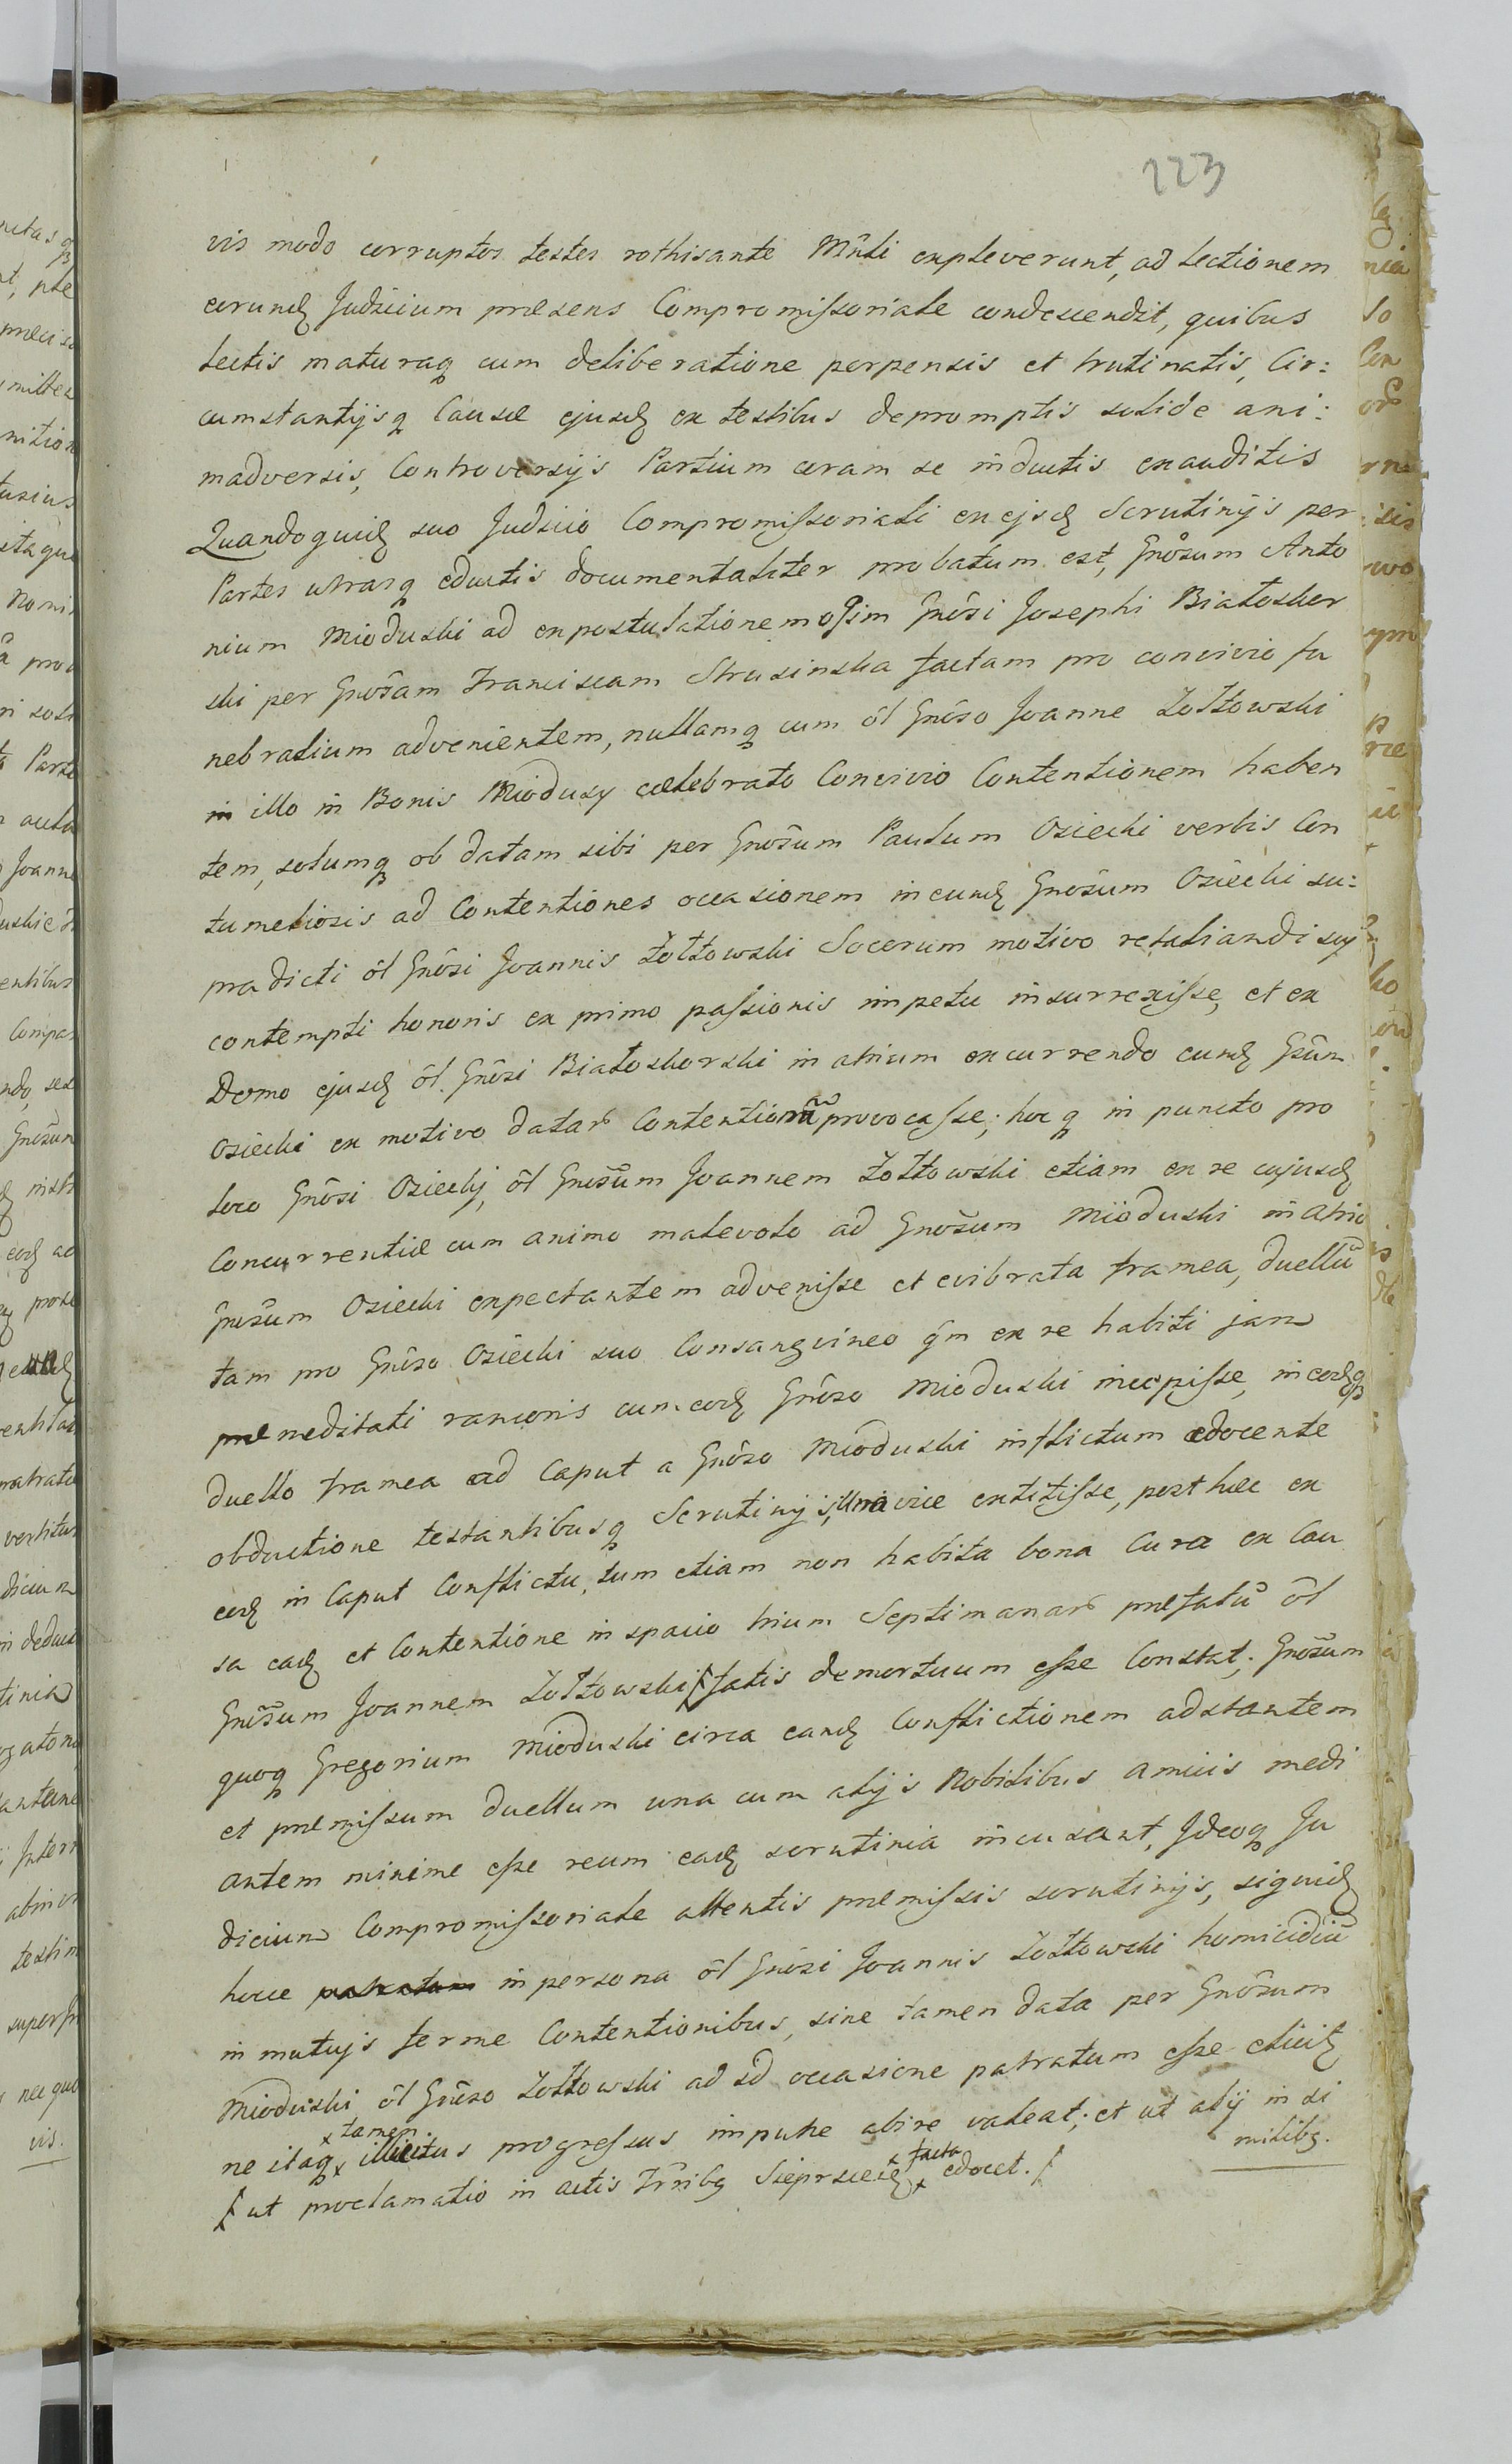 223
vis modo corruptos testes rothisante Mnl̃i expleverunt, ad lectionem
eorundȝ Judicium præsens Compromissoriale condescendit, quibus
lectis maturaqȝ cum deliberatione perpensis et trutinatis, Cir:
cumstantijsqȝ Causæ ejusdȝ ex testibus depromptis solide ani:
madversis, Controversijs Partium coram se inductis exauditis
Quandoquidȝ suo Judicio Compromissoriali ex ejsdȝ Scrutinijs per
Partes utrasqȝ eductis documentaliter probatum est, Gnõsum Anto
nium Mioduski ad expostulationem olim Gnõsi Josephi Białoskor
ski per Gnõsam Franciscam Strusinska factam pro convivio fu
nebralium advenientem, nullamqȝ cum õl Gnõso Joanne Zołtowski
in illo in Bonis Miodusy celebrato Convivio Contentionem haben
tem, solumqȝ ob datam sibi per Gnõsum Paulum Osiecki verbis Con
tumeliosis ad Contentiones occasionem in eundȝ Gnõsum Osiecki su:
pradicti õl Gnõsi Joannis Zołtowski Socerum motivo retaliandi suj
contempti honoris ex primo passionis impetu insurrexisse, et ex
Domo ejusdȝ õl. Gnõsi Białoskorski in atrium excurrendo eundȝ Gsũm
Osiecki ex motivo datar Contentionũ provocasse; hocqȝ in puncto pro
loco Gnõsi Osieckj, õl Gnõsum Joannem Zołtowski etiam ex re cujusdȝ
Concurrentiæ cum animo malevolo ad Gnõsum Mioduski in atrio
Gnõsum Osiecki expectantem advenisse et evibrata framea, duellũ
tam pro Gnõso Osiecki suo Consangvineo qm̃ ex re habiti jam
præmeditati rancoris cum eodȝ Gnõso Mioduski incepisse, in eodȝqȝ
duello framea ad Caput a Gnõso Mioduski inflictum edocente
obductione testantibusqȝ Scrutinijs, Una vice extitisse, post hæc ex
eodȝ in Caput Conflictu, tum etiam non habita bona Cura ex Cau
sa eadȝ et Contentione in spacio trium Septimanar præfatũ õl
Gnõsum Joannem Zołtowski ⌠fatis demortuum esse Constat; Gnõsum
quoqȝ Gregorium Mioduski circa eandȝ Conflictionem adstantem
et præmissum duellum una cum alijs Nobilibus amicis medi
antem minime esse reum eadȝ scrutinia incusant, Jdeoqȝ Ju
dicium Compromissoriale attentis præmissis scrutinijs, siquidȝ
hocce patratum in persona õl Gnõsi Joannis Zołtowski homicidiũ
in mutujs ferme Contentionibus, sine tamen data per Gnõsum
Mioduski õl Gnõso Zołtowski ad id occasione patratum esse elicitȝ
ne itaqȝ × tamen × illicitus progressus impune abire valeat; et ut alij in si
milibȝ.
⌠ ut proclamatio in actis Trñibȝ Sieprsceñ × facta × edocet. ⌠